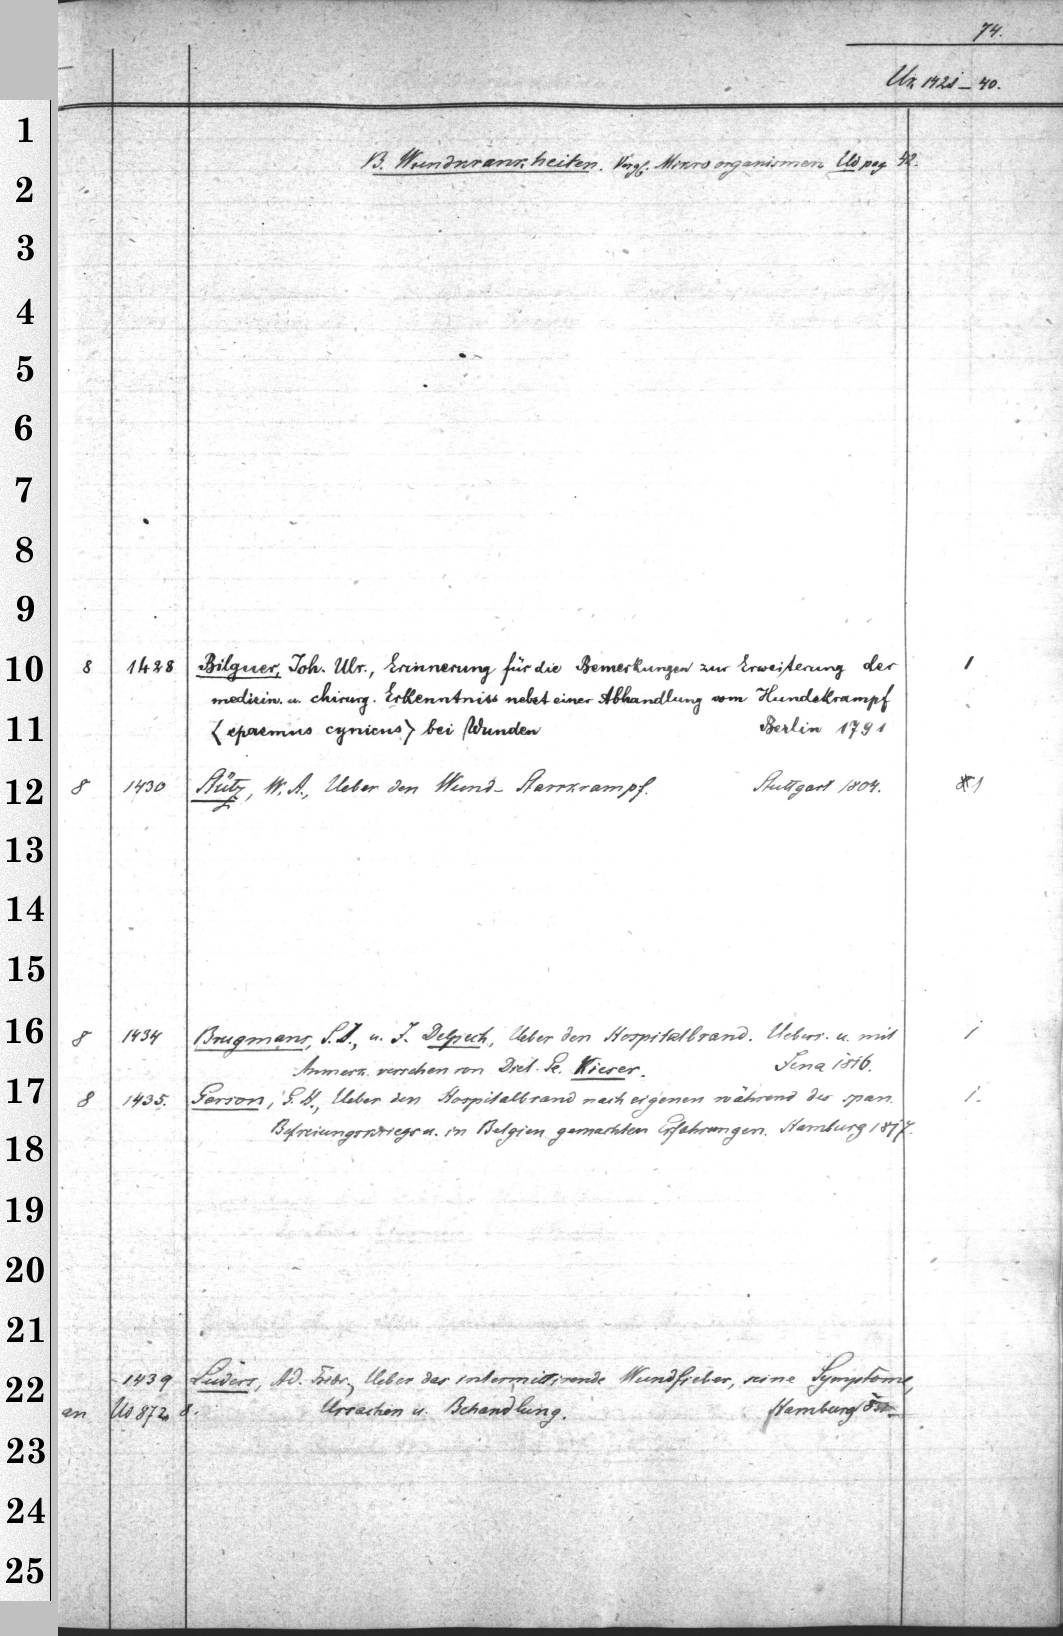 74.
Ur. 1421 – 40.
1
B. Wundkrankheiten. Vergl. Mikroorganismen Ud pag 42.
2
3
4
5
6
7
8
9
10 8 1428 Bilguer, Joh. Ulr., Erinnerung für die Bemerkungen zur Erweiterung der 1
medicin. u. chirurg. Erkenntniss nebst einer Abhandlung vom Hundskrampf
11 (spasmus cynicus) bei Wunden Berlin 1791
12 8 1430 Stütz, W. A., Ueber den Wund-Starrkrampf. Stuttgart 1804. 1
13
14
15
16 8 1434 Brugmans, S. J., u. J. Delpech, Ueber den Hospitalbrand. Uebers. u. mit 1
Anmerk. versehen von Diet. Ge. Kieser. Jena 1816.
17 8 1435. Gerson, G. H., Ueber den Hospitalbrand nach eigenen während des span. 1.
18 Befreiungskrieges u. in Belgien gemachten Erfahrungen. Hamburg 1817.
19
20
21
22 1439 Lüders, Ad. Friedr., Ueber das intermittirende Wundfieber, seine Symptome,
an Us 872 8. Ursachen u. Behandlung. Hamburg
23
24
25